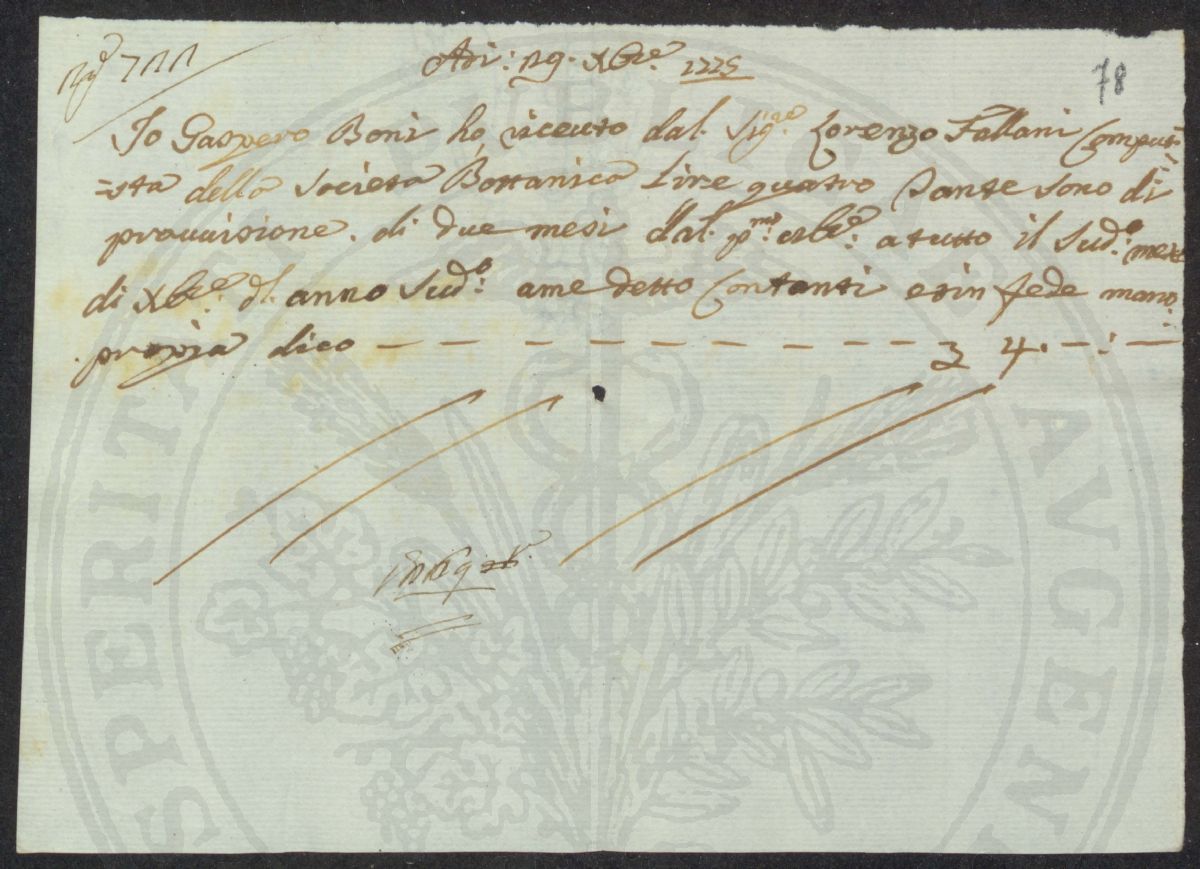 78
Adi: 29. Xbre. 1775
Io Gaspero Boni ho, riceuto dal. Sigre. Lorenzo Fallani Computi
=sta della Società Bottanica Lire quattro Dante sono di
prouuisione. di due mesi dal. pmo. 9bre: a tutto il Sudo: mese
di Xbre: dl. anno Sudo: a me detto Contanti e in fede mano
propia dico — — — — — — — — — — — 4. —:—
PROSPERITATI PUBLICAE AVGENDAE